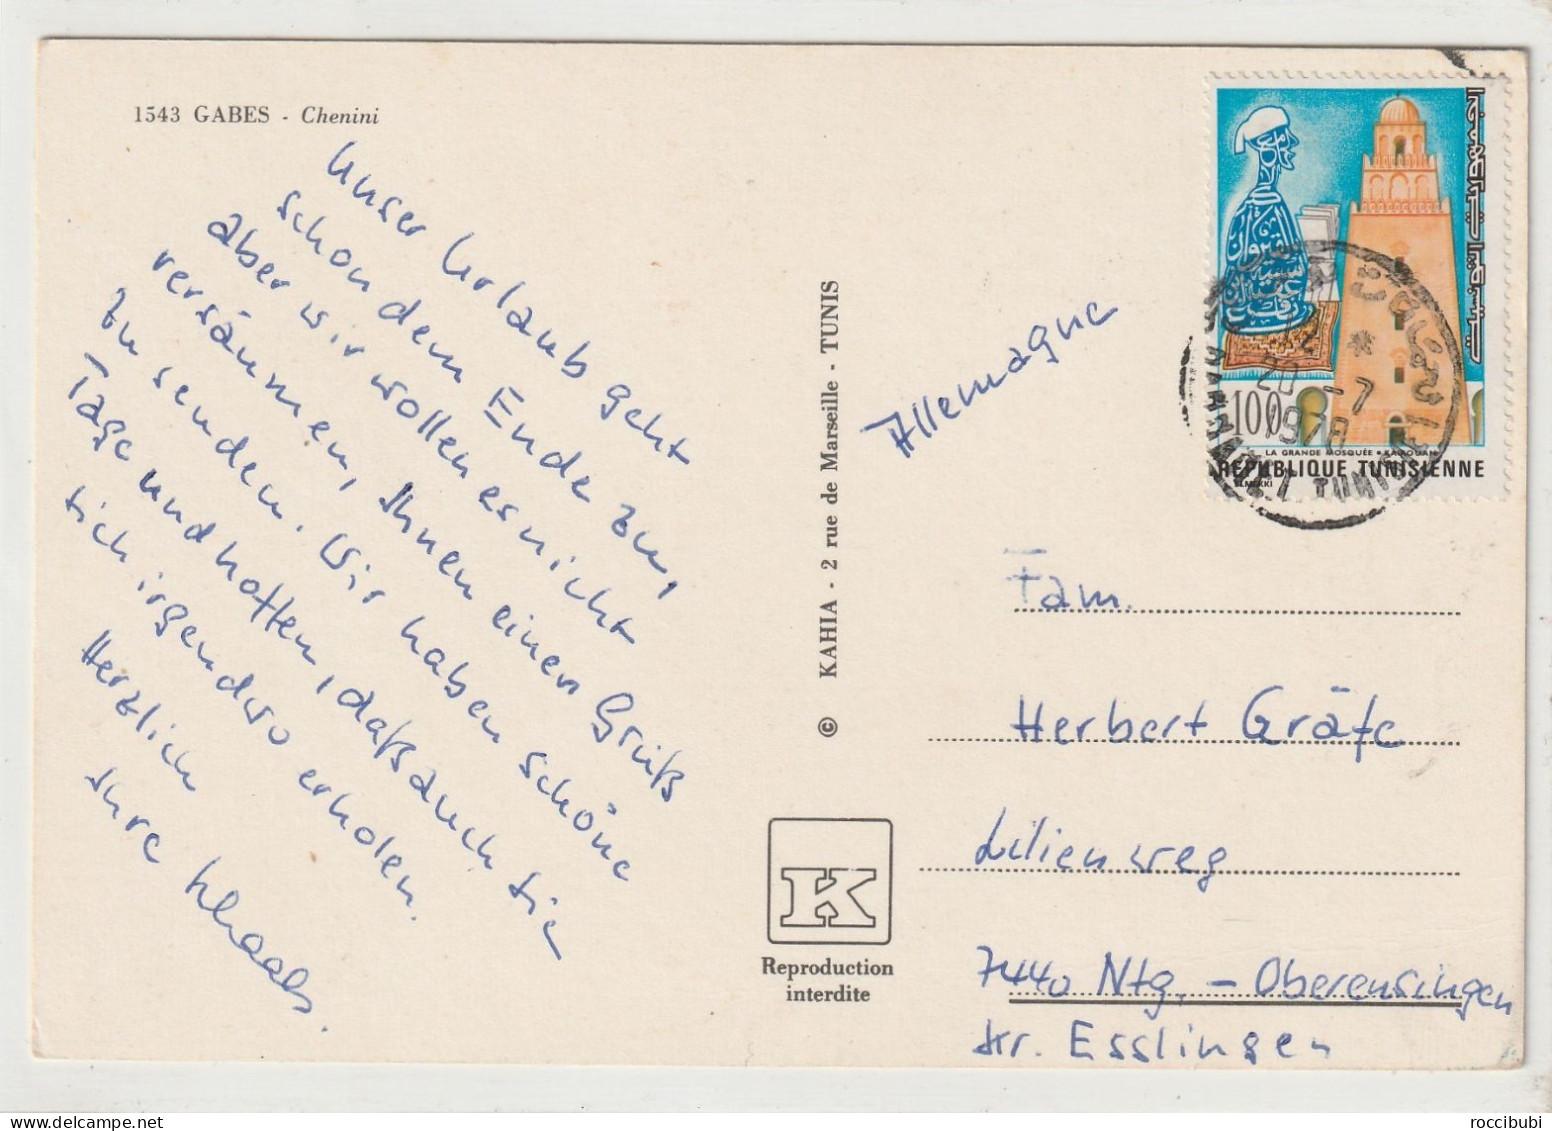 1543 GABES - Chenini
Unser Urlaub geht
schon dem Ende zu,
aber wir wollen es nicht
versäumen, Ihnen einen Gruß
zu senden. Wir haben schöne
Tage und hoffen, daß auch Sie
sich irgendwo erholen.
Herzlich
Ihre
© KAHIA - 2 rue de Marseille - TUNIS
K
Reproduction
interdite
Allemagne
الجمهورية التونسية
القيروان
100
LA GRANDE MOSQUÉE • KAIROUAN
REPUBLIQUE TUNISIENNE
ELMEKKI
20 - 7
1978
Fam.
Herbert Gräfe
Lilienweg
7440 Ntg. - Oberensingen
Kr. Esslingen
roccibubi